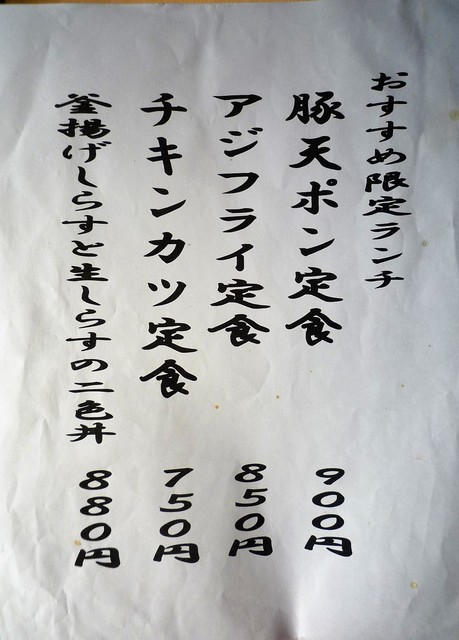 おすすめ限定ランチ
豚天ポン定食 900円
アジフライ定食 850円
チキンカツ定食 750円
釜揚げしらすと生しらすの二色丼 880円